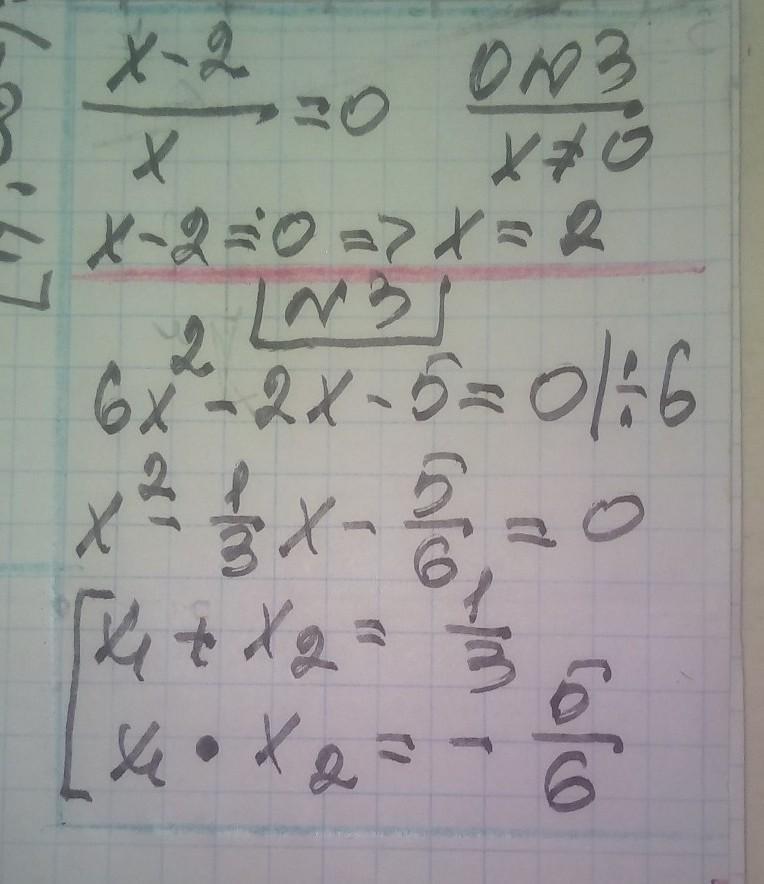 x-2
x
=0
ОДЗ
x≠0
x-2=0 => x = 2
N3
6x²-2x-5=0|÷6
x²-1/3x-5/6=0
x₁+x₂=1/3
x₁•x₂=-5/6